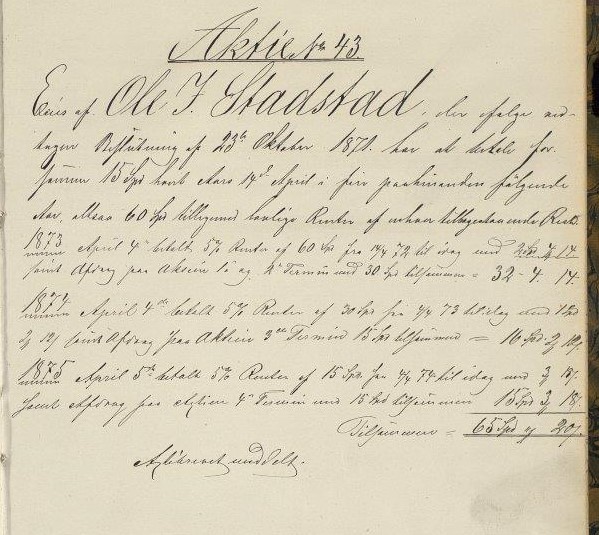 Aktie No 43
Eies af Ole J. Stadstad, der ifølge ved-
tagen Beslutning af 23de Oktober 1871. har at betale for
samme 15 Spd hvert Aars 14de April i fire paahinanden følgende
Aar, altsaa 60 Spd tilligemed lovlige Renter af enhver tilbagestaaende Rest.
1873 April 4de betalt 5% Renter af 60 Spd fra 14/4 72 til idag med
samt Afdrag paa Aktien 1ste og 2den Termin med 30 Spd tilsammen = 32 - 4. 14.
1874 April 4de betalt 5% Renter af 30 Spd fra 4/4 73 til idag med 1 Spd
samt Afdrag paa Aktien 3die Termin 15 Spd tilsammen = 16 Spd
1875 April 5te betalt 5% Renter af 15 Spd fra 4/4 74 til idag med
samt Afdrag paa Aktien 4de Termin med 15 Spd tilsammen 15 Spd
Tilsammen = 65 Spd 20
Aktiebrevet uddelt.